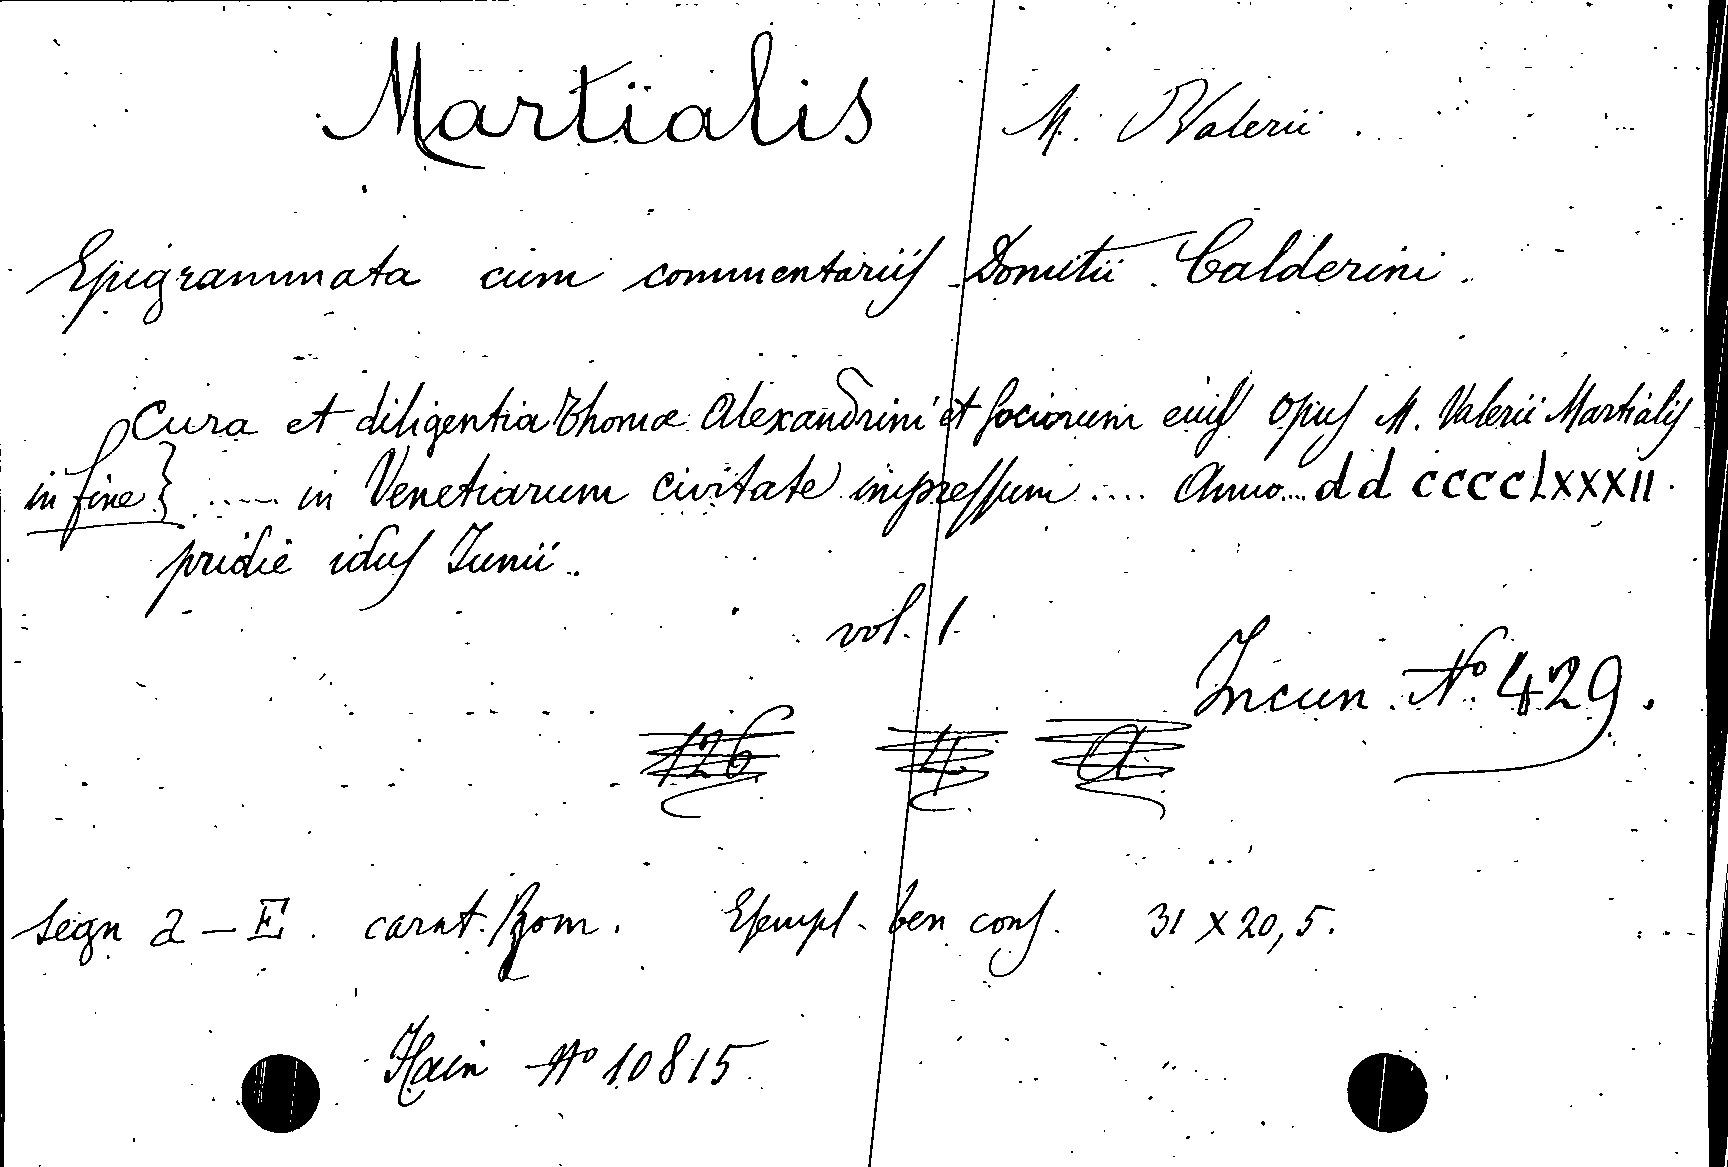 Martialis M. Valerii.
Epigrammata cum commentariis Domitii Calderini.
Cura et diligentia Thomæ Alexandrini et sociorum eius opus M. Valerii Martialis
in fine } ..... in Venetiarum civitate impressum .... Anno... dd cccclxxxii.
pridie idus Iunii.
vol. 1.
Incun. Nº 429.
126 4 a
segn a – E. carat. Rom. Esempl. ben cons. 31 x 20,5.
Hain Nº 10815